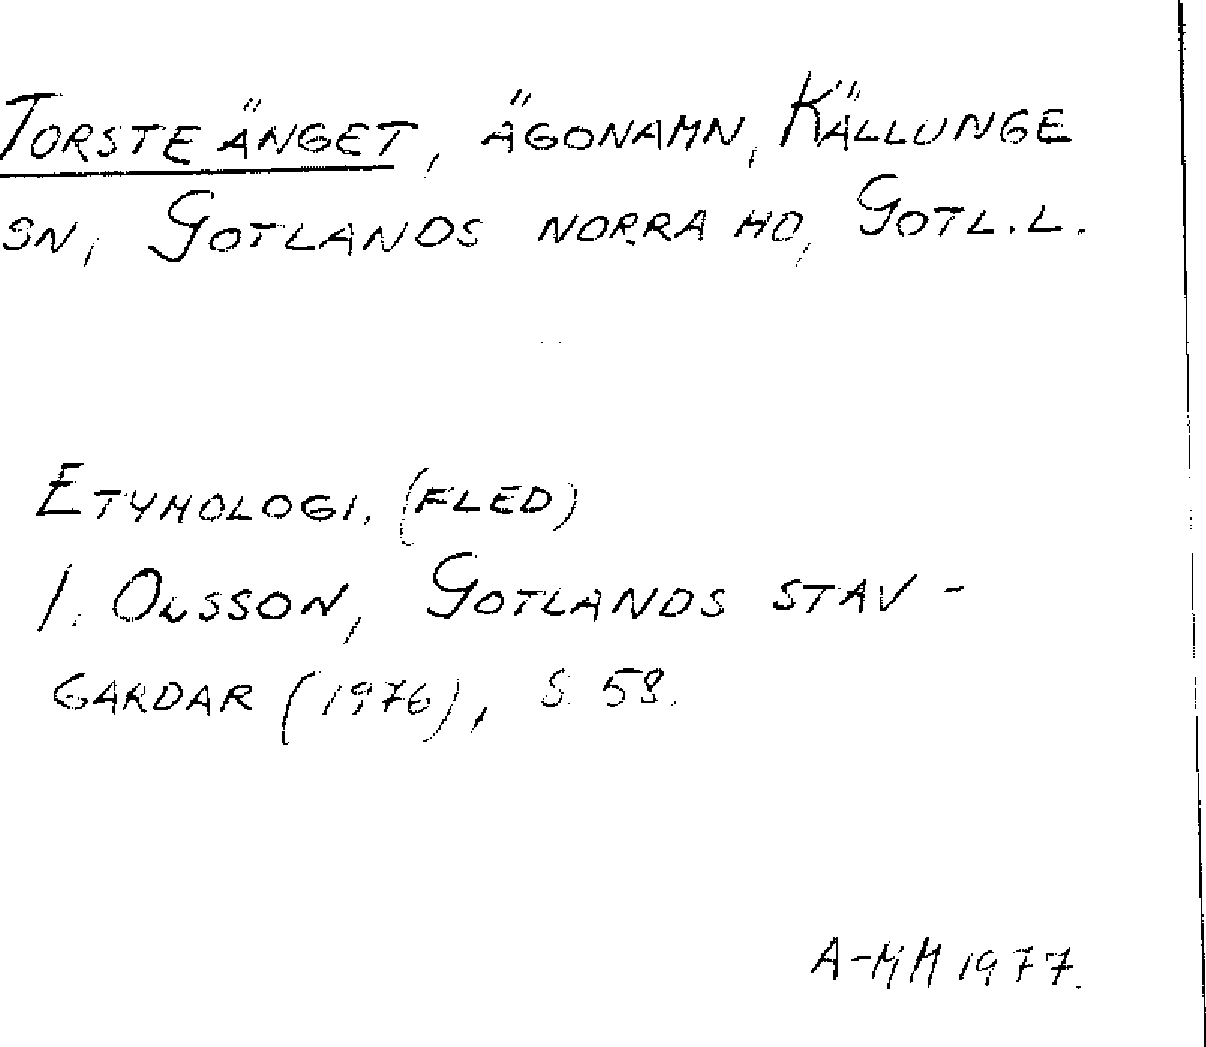 TORSTEÄNGET, ÄGONAMN, KÄLLUNGE
SN, GOTLANDS NORRA HD, GOTL.L.
ETYMOLOGI. (FLED)
I. OLSSON, GOTLANDS STAV-
GARDAR (1976), S. 58.
A-MM 1977.